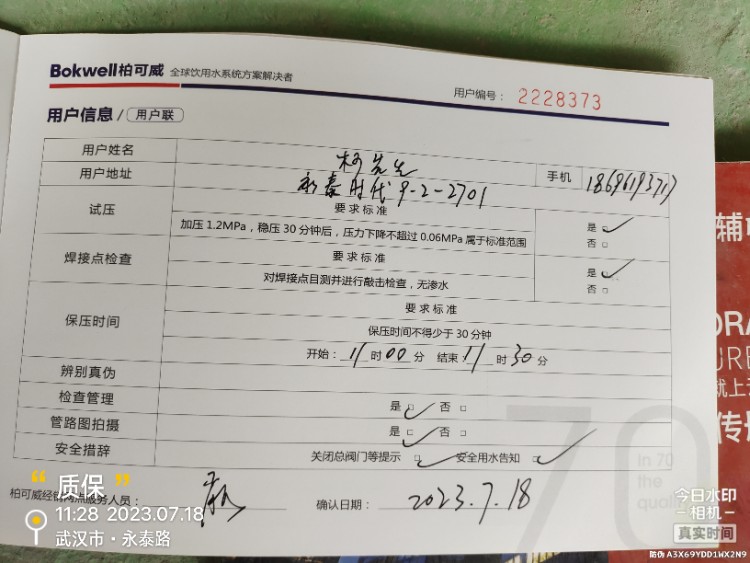 Bokwell柏可威 全球饮用水系统方案解决者
用户编号： 2228373
用户信息 / 用户联
用户姓名 柯先生
手机 18696193717
用户地址 永泰时代9-2-2701
试压 要求标准
加压 1.2MPa，稳压 30 分钟后，压力下降不超过 0.06MPa 属于标准范围
是 ✓
否 □
焊接点检查 要求标准
对焊接点目测并进行敲击检查，无渗水
是 ✓
否 □
保压时间 要求标准
保压时间不得少于 30 分钟
开始： 11 时 00 分 结束 11 时 30 分
辨别真伪
检查管理 是 □ ✓ 否 □
管路图拍摄 是 □ ✓ 否 □
安全措辞 关闭总阀门等提示 □ ✓ 安全用水告知 □ ✓
柏可威经销网点服务人员：
确认日期： 2023.7.18
“质保”
11:28 2023.07.18
武汉市·永泰路
70
in 70
the
辅
URE
就上
传
今日水印
-相机-
真实时间
防伪 A3X69YDD1WX2N9